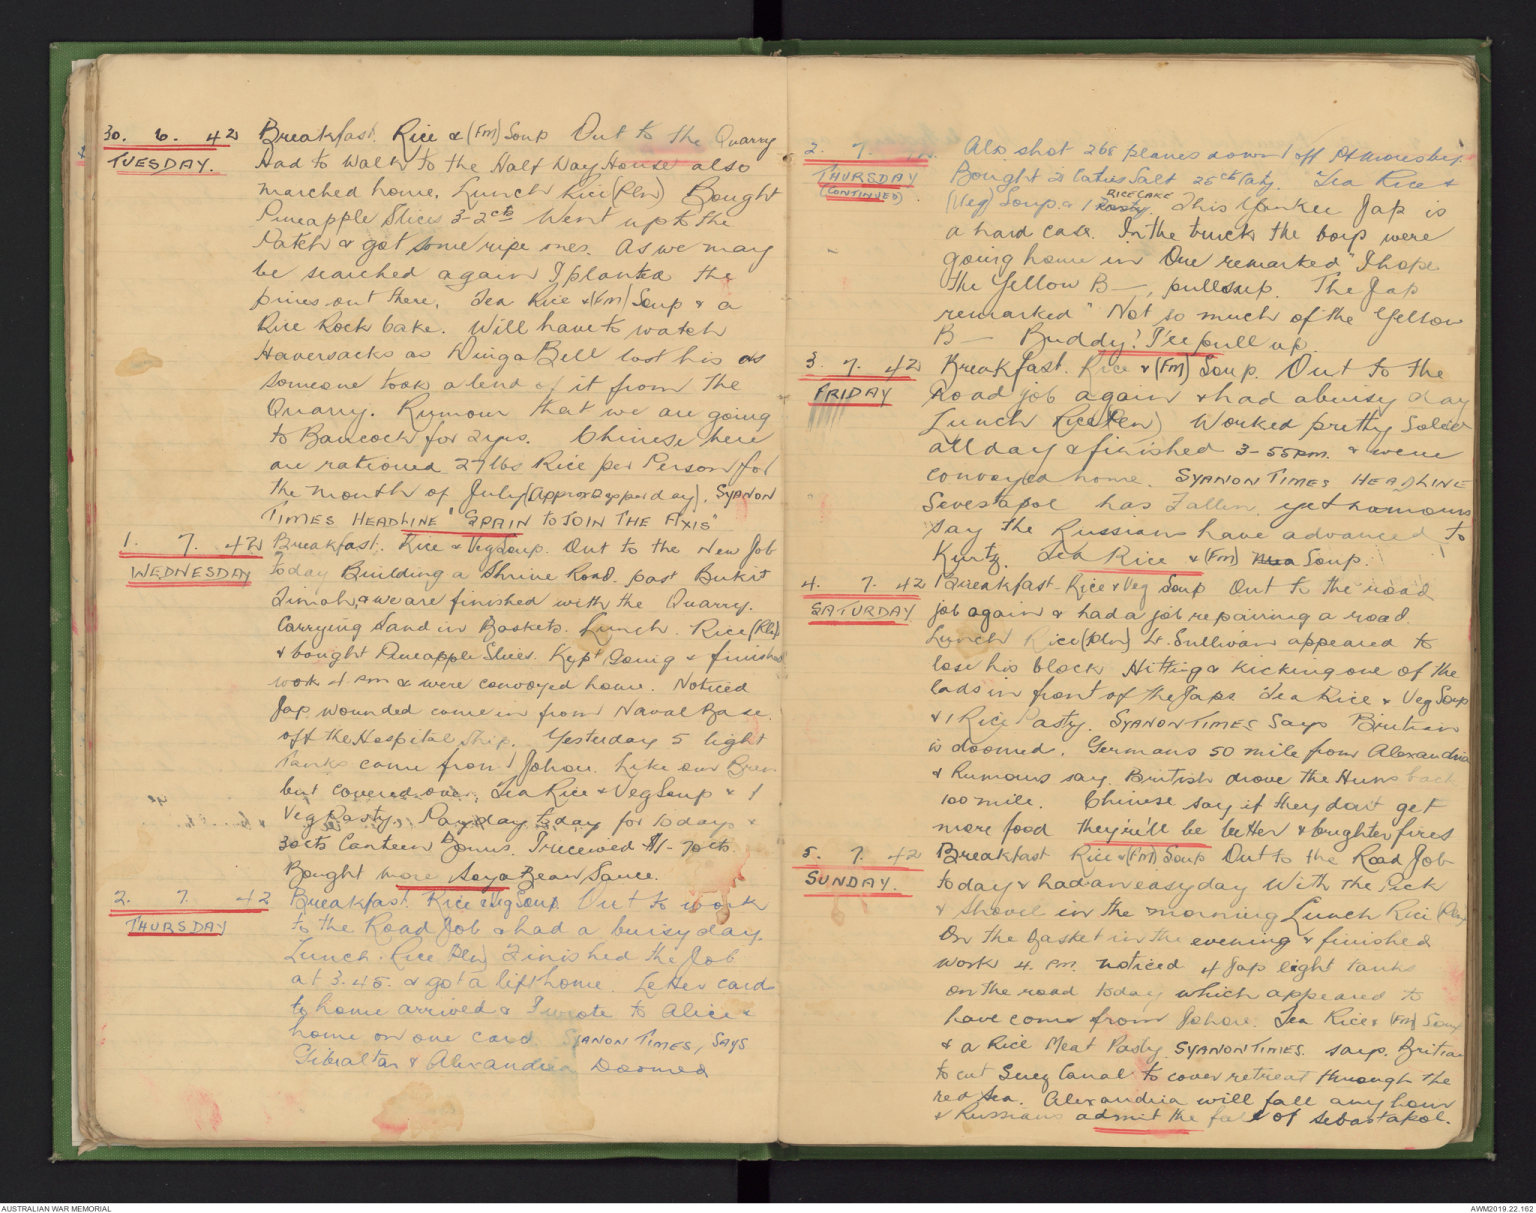 30. 6. 42
TUESDAY.
Breakfast. Rice & (Fm) Soup Out to the Quarry
Had to walk to the Half Way House also
marched home. Lunch Rice (Pln) Bought
Pineapple Slices 3-2cts Went up to the
Patch & got some ripe ones. As we may
be searched again I planted the
pines out there. Tea Rice & (Fm) Soup & a
Rice Rock Cake. Will have to watch
Haversacks as Winga Bell lost his as
someone took a lend of it from the
Quarry. Rumour that we are going
to Bancock for 2 yrs. Chinese here
are rationed 27 lbs Rice per Person for
the month of July (approx per day). SYANON
TIMES HEADLINE "SPAIN to JOIN THE AXIS"
1. 7. 42
WEDNESDAY
Breakfast. Rice & Veg Soup. Out to the New Job
today Building a Shrine Road past Bukit
Timah, & we are finished with the Quarry.
Carrying Sand in Baskets. Lunch. Rice (Pln)
& bought Pineapple Slices. Kept Going & finished
work 4 pm & were convoyed home. Noticed
Jap wounded come in from Naval Base
off the Hospital Ship. Yesterday 5 light
tanks came from Johore. Like our Bren
but covered over. Tea Rice & Veg Soup & 1
Veg Pasty. Pay day today for 10 days &
30cts Canteen Bonus. I received $1-70cts.
Bought more Soya Bean Sauce.
2. 7. 42
THURSDAY
Breakfast. Rice Veg Soup. Out to work
to the Road Job & had a buisy day.
Lunch. Rice (Pln) Finished the Job
at 3.45. & got a lift home. Letter cards
to home arrived & I wrote to Alice &
home on one card. SYANON TIMES, SAYS
Gibraltar & Alexandria Doomed
2. 7. 42.
THURSDAY
(CONTINUED).
Also shot 268 planes down off Pt Moresby.
Bought 2 Caties Salt 25cts Caty. Tea Rice &
(Veg) Soup & 1 RICE CAKE This Yankee Jap is
a hard case. In the truck the boys were
going home in One remarked "I hope
the Yellow B—, pulls up. The Jap
remarked "Not so much of the Yellow
B— Buddy! I'ee pull up
3. 7. 42
FRIDAY
Breakfast. Rice & (Fm) Soup. Out to the
Road job again & had a buisy day
Lunch Rice (Pln) Worked pretty Solid
all day & finished 3-55pm. & were
convoyed home. SYANON TIMES HEADLINE
Sevestapol has Fallen, yet rumours
say the Russians have advanced to
Kurtz. Tea Rice & (Fm) Soup.
4. 7. 42
SATURDAY.
Breakfast - Rice & Veg Soup Out to the road
job again & had a job repairing a road.
Lunch Rice (Pln) Lt. Sullivan appeared to
lose his block Hitting & Kicking one of the
lads in front of the Japs Tea Rice & Veg Soup
& 1 Rice Pasty. SYANON TIMES Says Britian
is doomed. Germans 50 mile from Alexandria
& Rumours say. British drove the Huns back
100 mile. Chinese say if they dont get
more food they're'll be better & brighter fires
5. 7. 42
SUNDAY.
Breakfast Rice & (Fm) Soup Out to the Road Job
today & had an easy day With the Pick
& Shovel in the morning Lunch Rice (Pln)
On the Basket in the evening & finished
work 4. pm. noticed 4 Jap light tanks
on the road today which appeared to
have come from Johore. Tea Rice & (Fm) Soup
& a Rice Meat Pasty. SYANON TIMES. says. Britian
to cut Suez Canal to cover retreat through the
red Sea. Alexandria will fall any hour
& Russians admit the fall of Sebastapol.
AUSTRALIAN WAR MEMORIAL
AWM2019.22.162